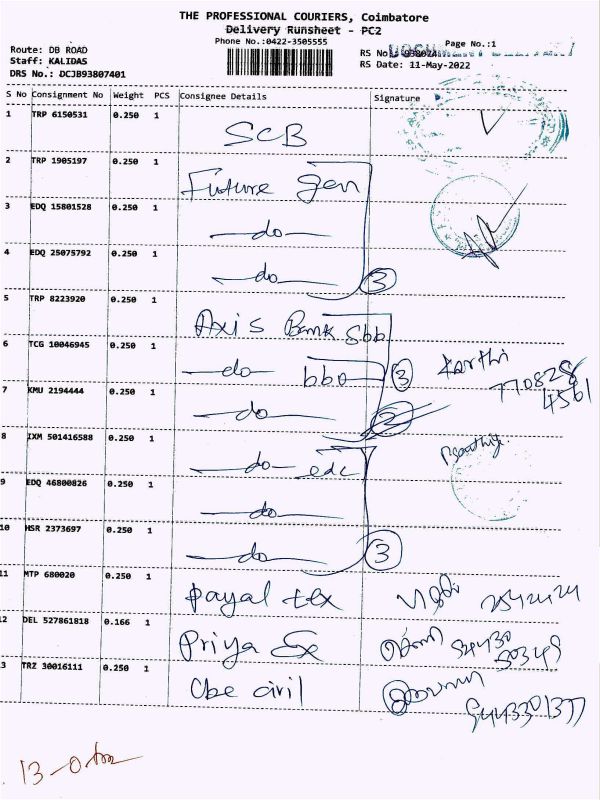 THE PROFESSIONAL COURIERS, Coimbatore
Delivery Runsheet - PC2
Phone No.:0422-3505555
Page No.:1
Route: DB ROAD
Staff: KALIDAS
RS Date: 11-May-2022
DRS No.: DCJB93807401
S No Consignment No Weight PCS Consignee Details Signature
1 TRP 6150531 0.250 1 SCB
2 TRP 1905197 0.250 1 Future Gen
3 EDQ 15801528 0.250 1 —do—
4 EDQ 25075792 0.250 1 —do— 3
5 TRP 8223920 0.250 1 Axis Bank Sbb
6 TCG 10046945 0.250 1 —do— bbo 3 Karthi
770828
4561
7 KMU 2194444 0.250 1 —do—
8 IXM 501416588 0.250 1 —do— edc
9 EDQ 46800826 0.250 1 —do—
10 HSR 2373697 0.250 1 —do— 3
11 MTP 680020 0.250 1 Payal tex
12 DEL 527861818 0.166 1 Priya
13 TRZ 30016111 0.250 1 Cbe civil
9443301377